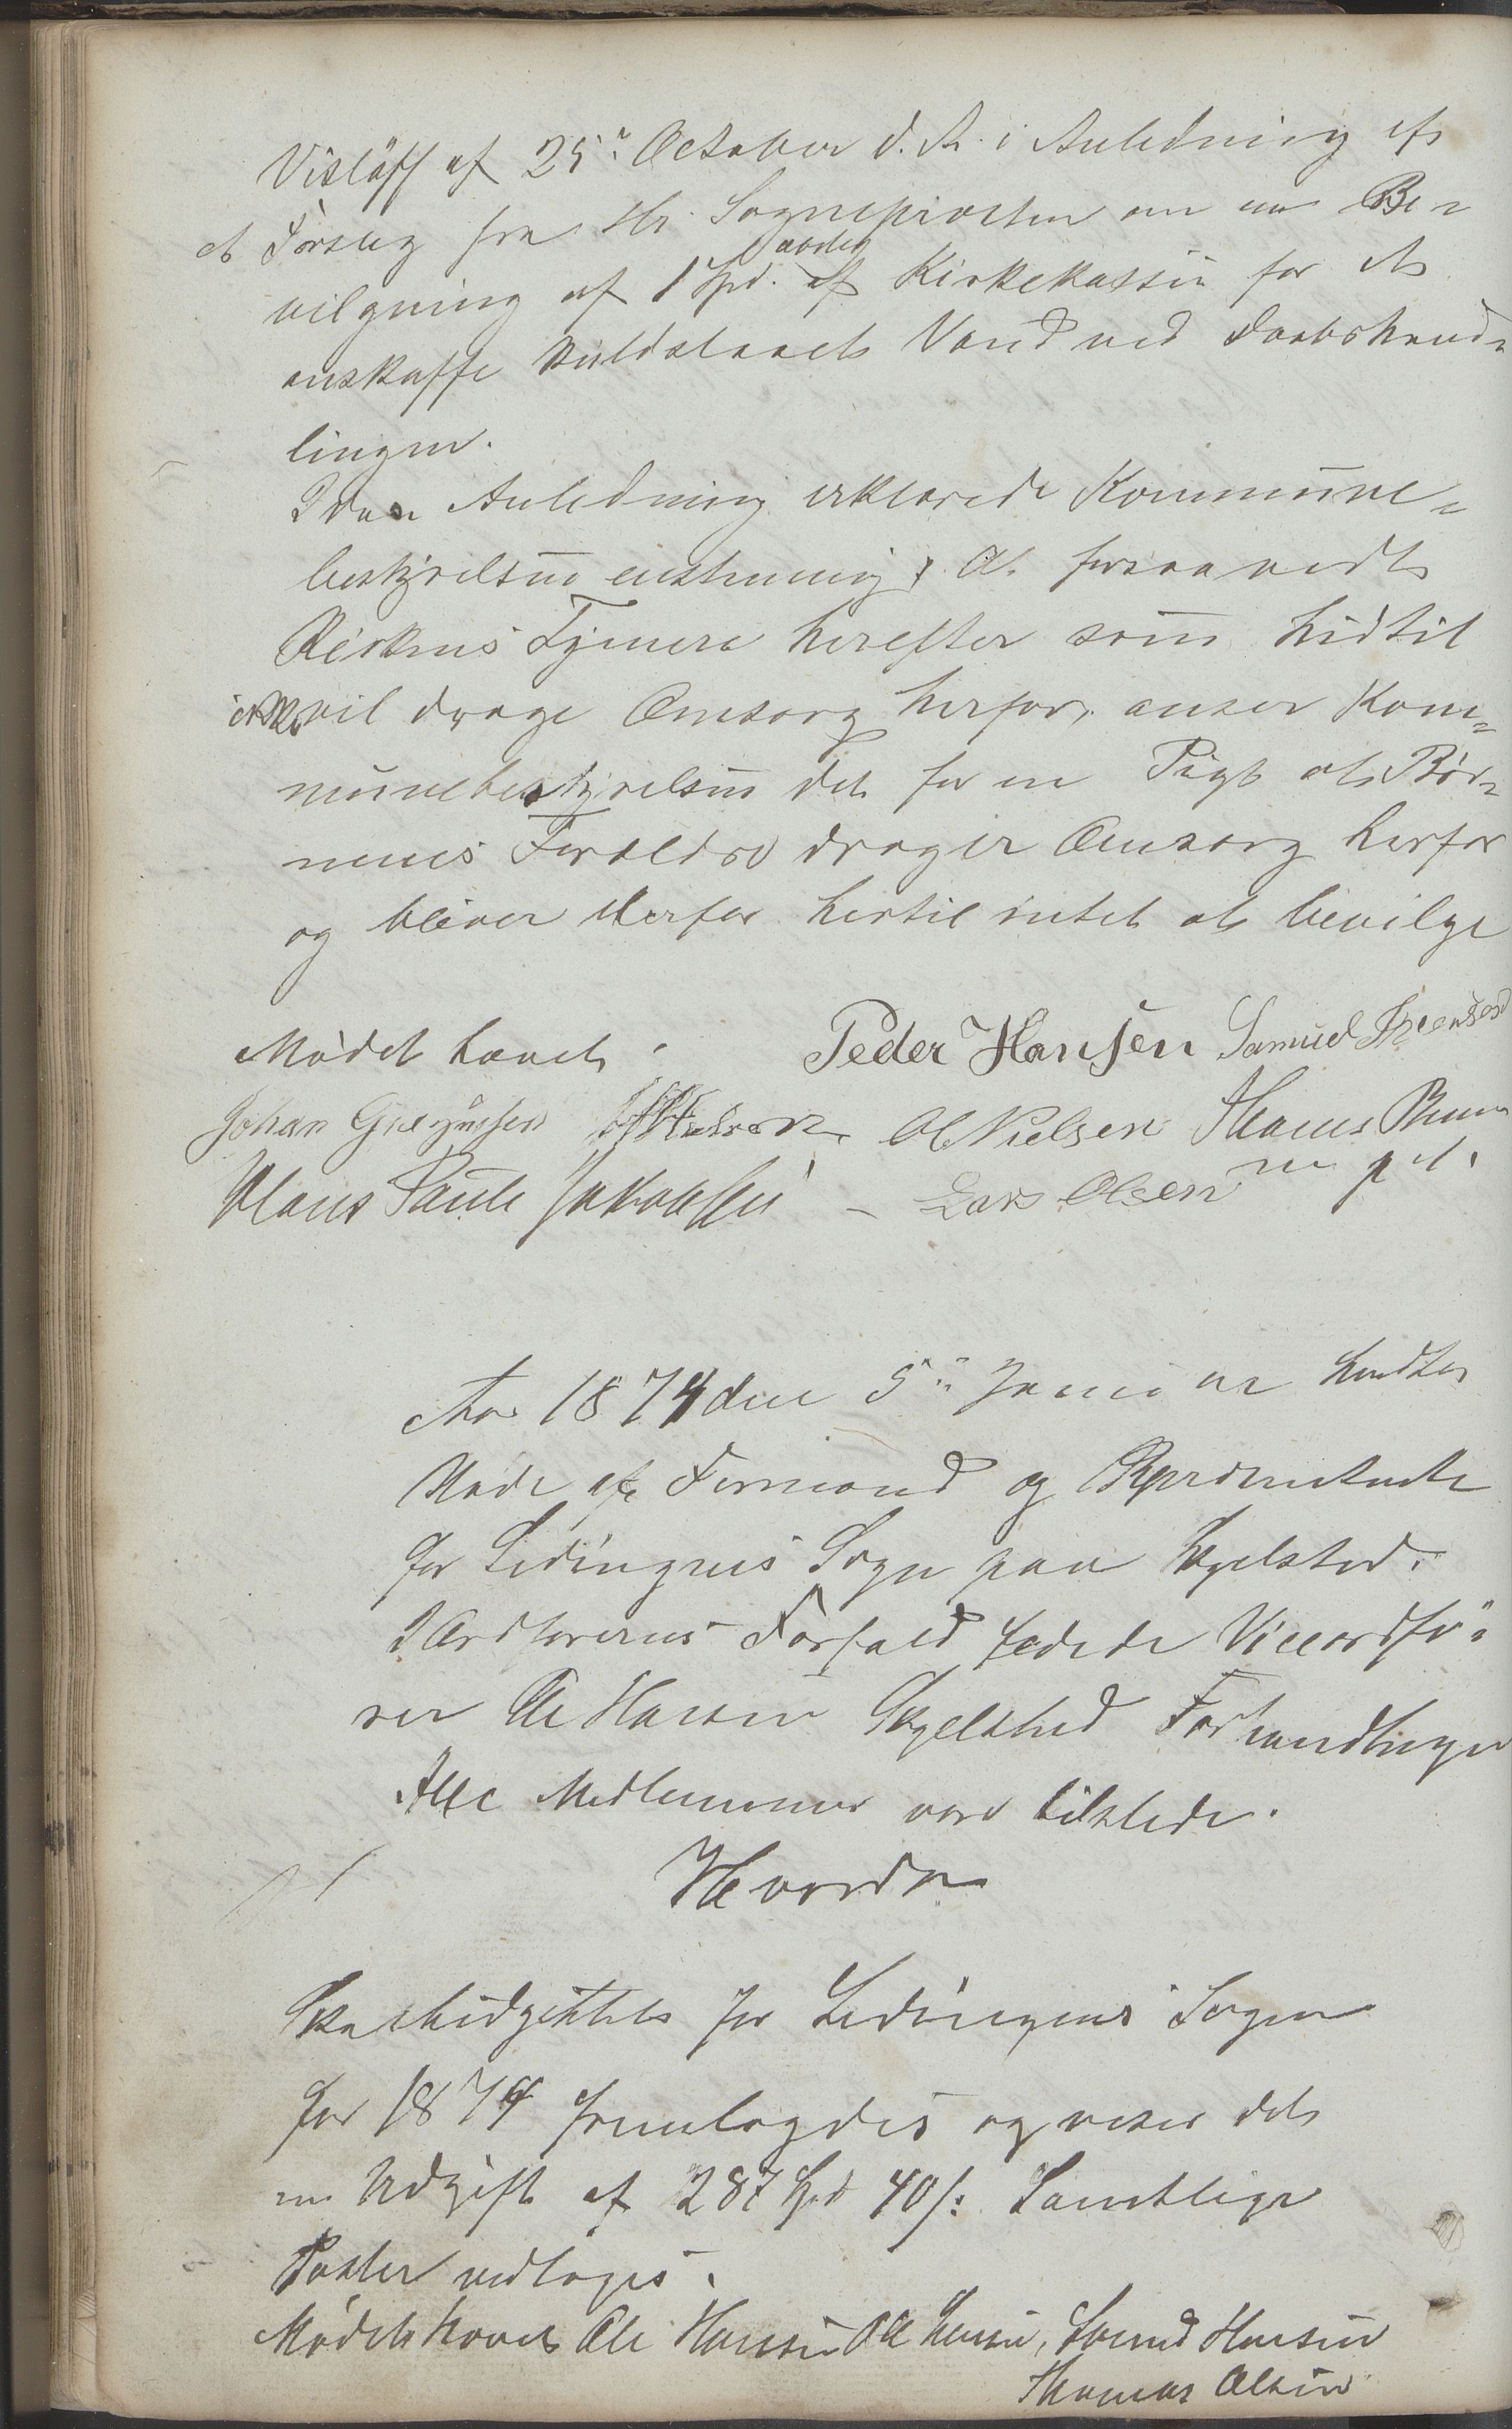 af 25de October d. A. i Anledning af
et Forslag fra Hr. Sognepræsten om en Be-
vilgning af 1 Spd. aarlig af Kirkekassen for at
anskaffe kuldslaaet Vand ved Daabshand-
lingen.
I den Anledning erklærede Kommune-
bestyrelsen enstemmig, At forsaavidt
Kirkens Tjenere herefter som hidtil
ikke vil drage Omsorg herfor, anser Kom-
munebestyrelsen det for en Pligt at Bør-
nenes Forældre drager Omsorg herfor
og bliver derfor hertil intet at bevilge
Mødet hævet. Peder Hansen Samuel
Johan Ol Nielsen Thomas
Hans Paul Jakobsen - Lars Olsen m p P.
Aar 1874 den 5te Januar holdtes
Møde af Formænd og Repræsentanter
for Lødingens Sogn paa
I Ordførerens Forfald ledede Viceordfø-
rer Ole Hansen Forhandlingen
Alle Medlemmer vare tilstede.
Hvorda
Skolebudgettet for Lødingens Sogn
for 1874 fremlagdes og viser det
en Udgift af 287 Spd 40 s: Samtlige
Poster vedtoges.
Mødet hævet Ole Hansen Ole Hansen, Hansen
Thomas Olsen